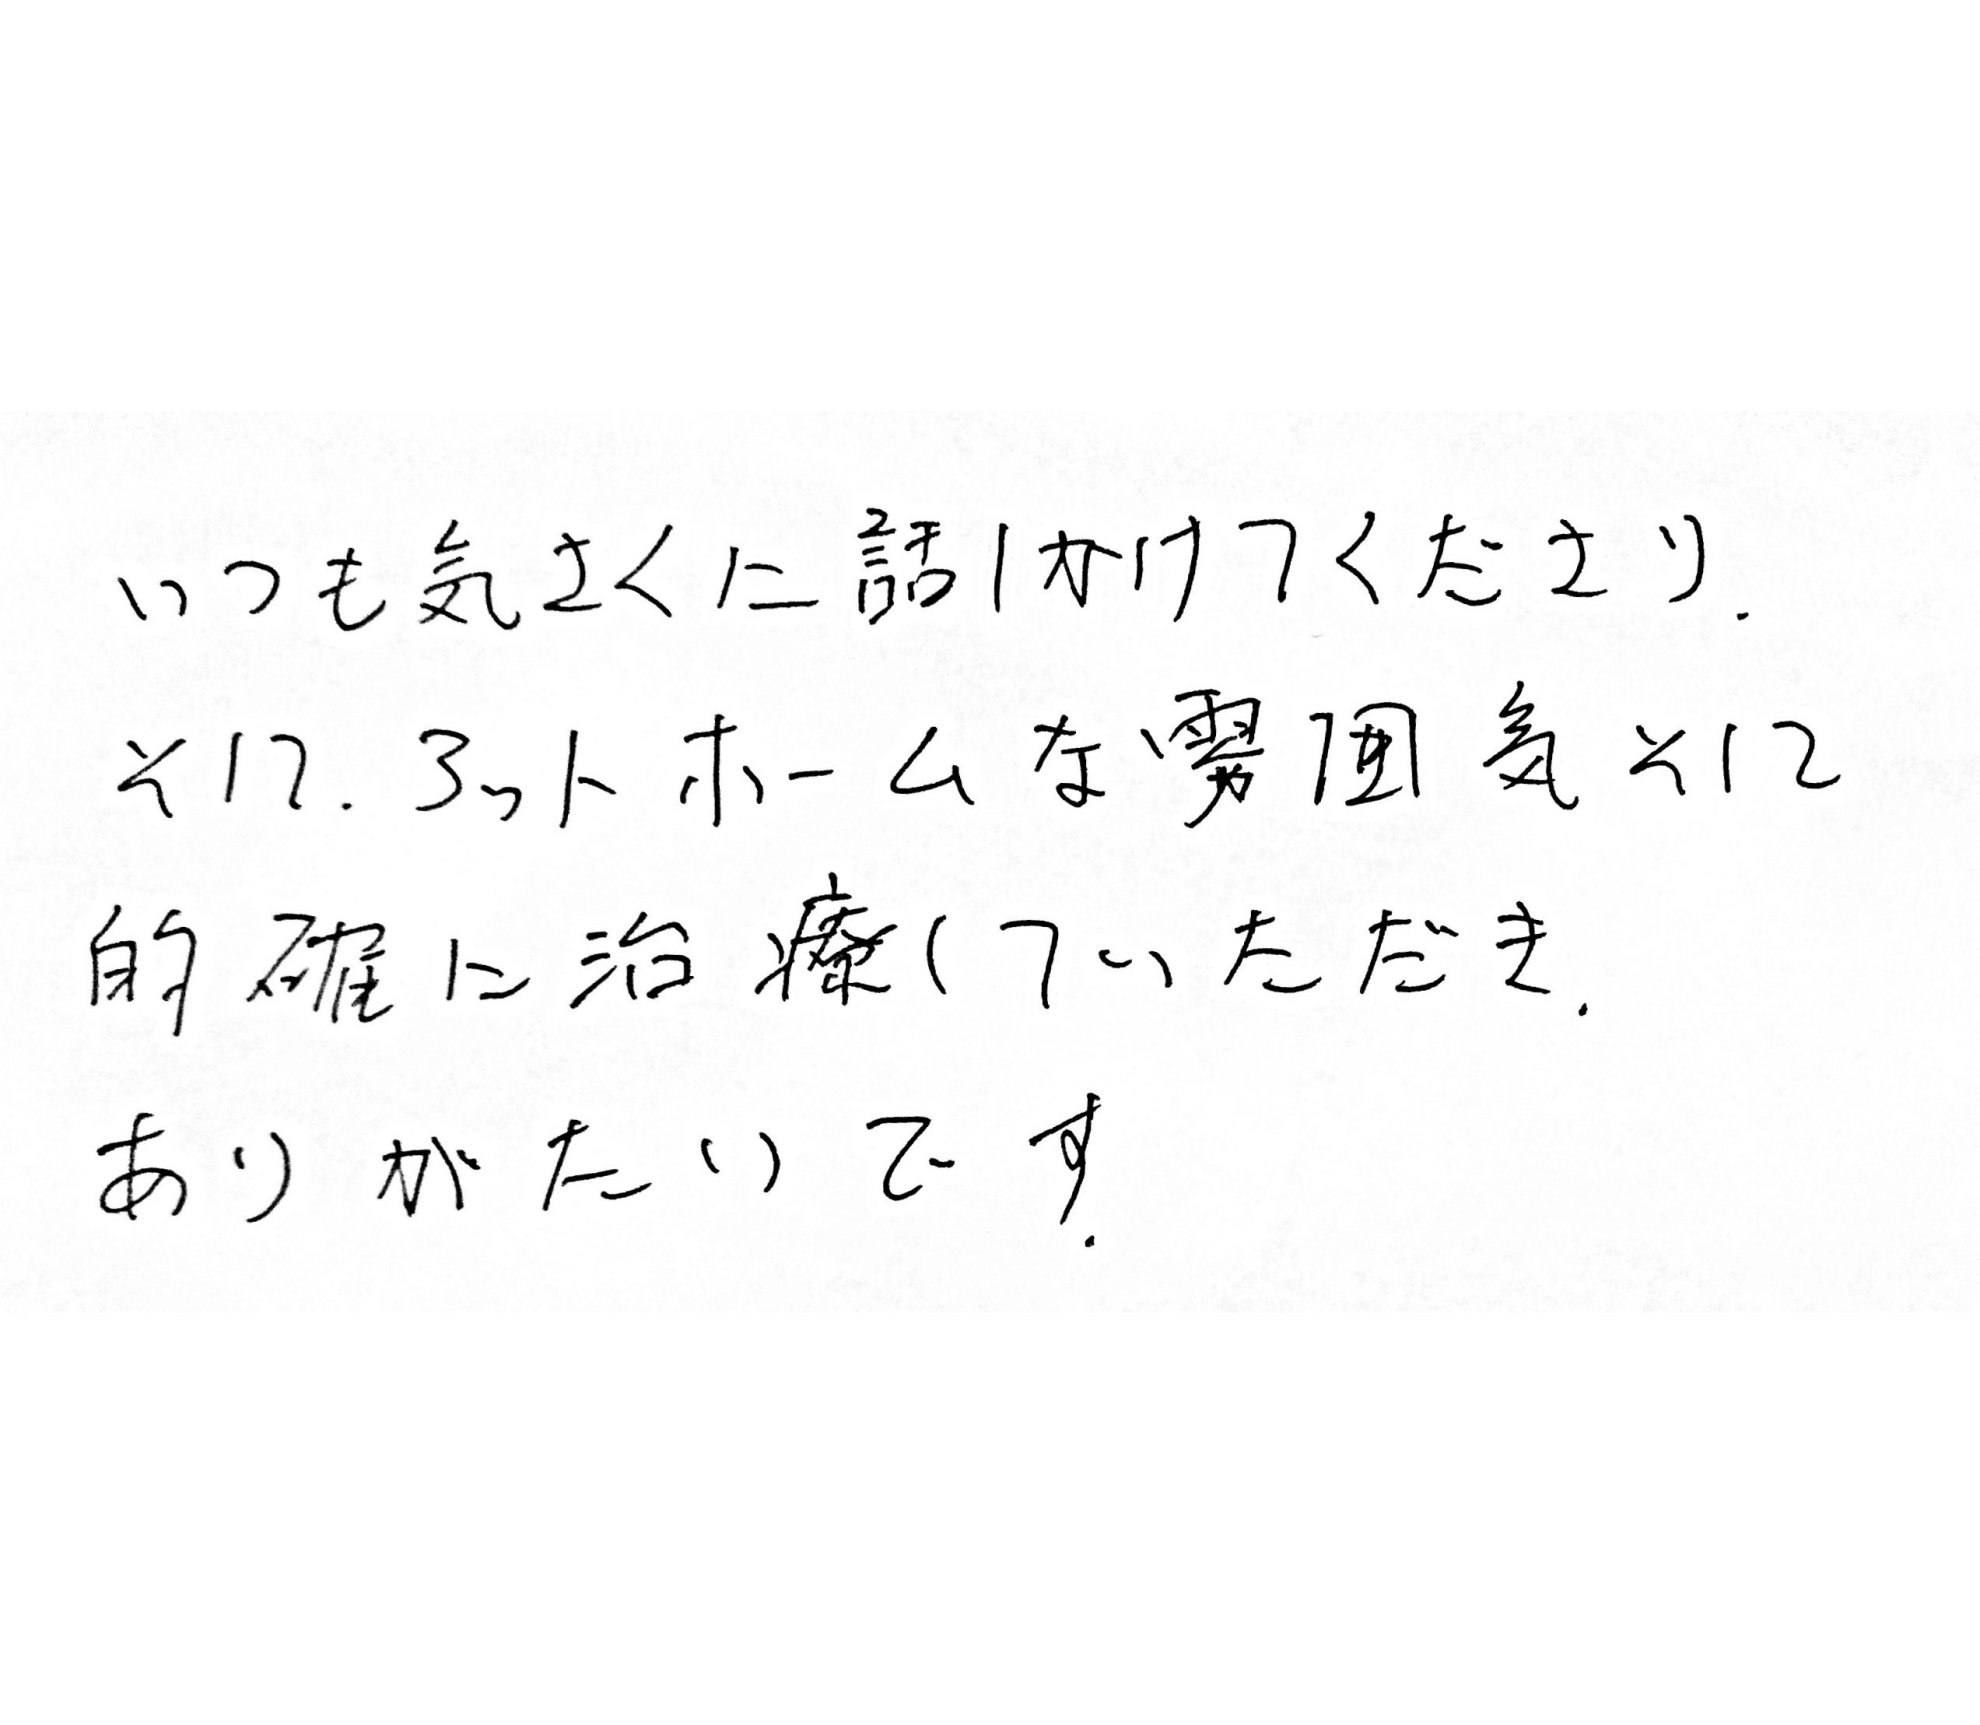 いつも気さくに話しかけてくださり.
そして.アットホームな雰囲気そして
的確に治療していただき.
ありがたいです.